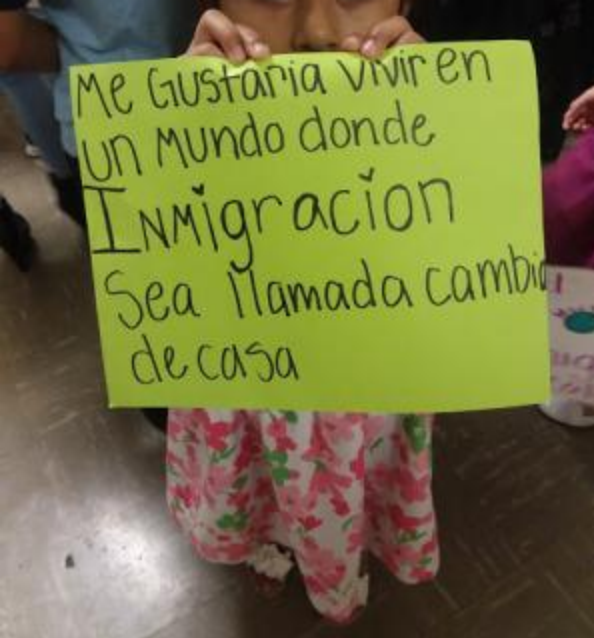 Me Gustaria vivir en
un Mundo donde
INMigracion
Sea llamada cambia
de casa